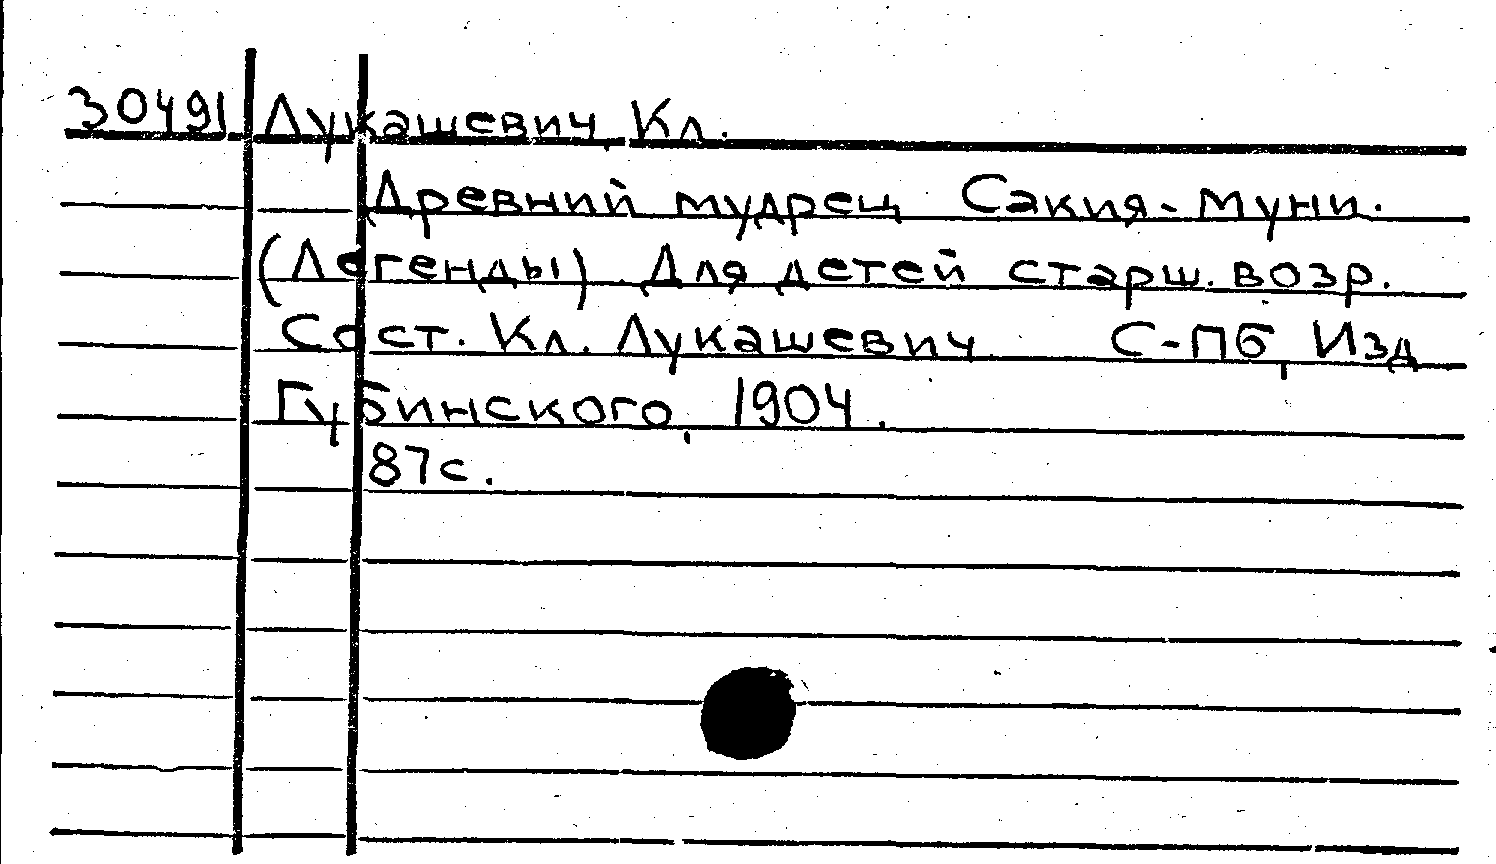 30491 Лукашевич, Кл.
Древний мудрец Сакия-Муни.
(Легенды). Для детей старш. возр.
Сост. Кл. Лукашевич С-Пб, Изд
Губинского, 1904.
87с.